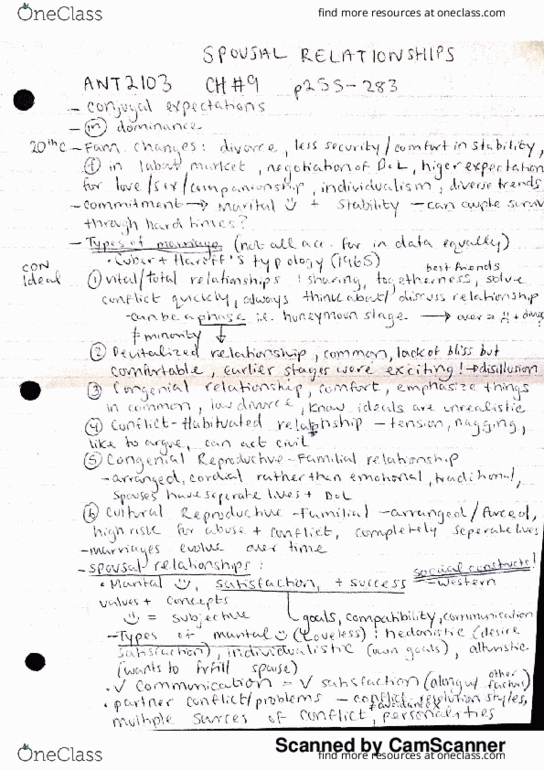 OneClass
find more resources at oneclass.com
SPOUSAL RELATIONSHIPS
ANT2103 CH#9 p255-283
- conjugal expectations
- (m) dominance
20thC - Fam. changes: divorce, less security/comfort in stability,
(f) in labat market, negotiation of DoL, higer expectation
for love/sex/companionship, individualism, diverse trends
- commitment → Marital ☺ + Stability - can couple surviv
through hard times?
- Types of marriage (not all acc. for in data equally)
• Cuber + Haroff's typology (1965)
CON
ideal
best friends
① vital/total relationships : sharing, togetherness, solve
conflict quickly, always think about/discuss relationship
- can be a phase i.e. huneymoon stage. → over =
minority
② Devitalized relationship, common, lack of bliss but
comfortable, earlier stages were exciting! → disillusion
③ Congenial relationship, comfort, emphasize things
in common, low divorce, know ideals are unrealistic
④ Conflict-Habituated relatnship - tension, nagging,
like to argue, can act civil
⑤ Congenial Reproductive-Familial relationship
- arranged, cordial rather than emotional, traditional,
spouses have seperate lives + DoL
⑥ Cultural Reproductive-Familial - arranged/forced,
high risk for abuse + conflict, completely seperate lives
- marriages evolve over time
- spousal relationships :
social constructs!
• Marital ☺, satisfaction, + success - Western
values + concepts
☺ = subjective goals, compatibility, communication
- Types of marital ☺ (Loveless) : hedonistic (desire
satisfaction), individualistic (own goals), altruistic
(wants to fulfill spouse)
• ✓ Communication = ✓ satisfaction (along w/ other
factors)
• partner conflict/problems - conflict resolution styles,
avoidance
multiple sources of conflict, personalities
Scanned by CamScanner
OneClass
find more resources at oneclass.com